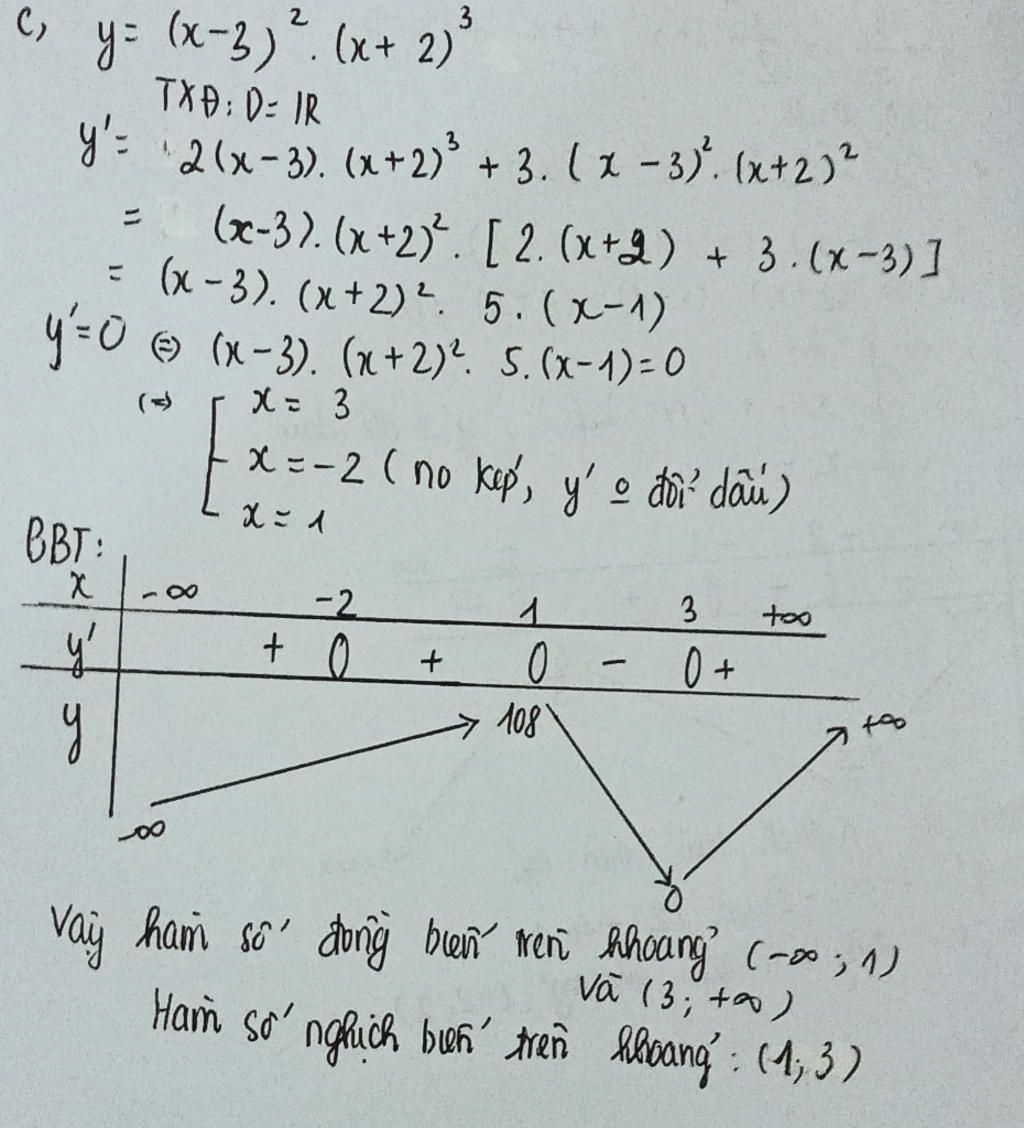 c, y = (x-3)². (x+ 2)³
TXĐ: D= IR
y'= 2(x-3). (x+2)³ + 3. (x-3)². (x+2)²
= (x-3). (x+2)². [2. (x+2) + 3. (x-3)]
= (x-3). (x+2)². 5. (x-1)
y'=0 ⇔ (x-3). (x+2)². 5. (x-1)=0
⇔ [ x = 3
x = -2 (no kép, y' o đổi dấu)
x = 1
BBT:
x | -∞ -2 1 3 +∞
y' | + 0 + 0 - 0 +
y 108 +∞
-∞ 0
Vậy hàm số đồng biến trên khoảng (-∞; 1)
và (3; +∞)
Hàm số nghịch biến trên khoảng: (1; 3)